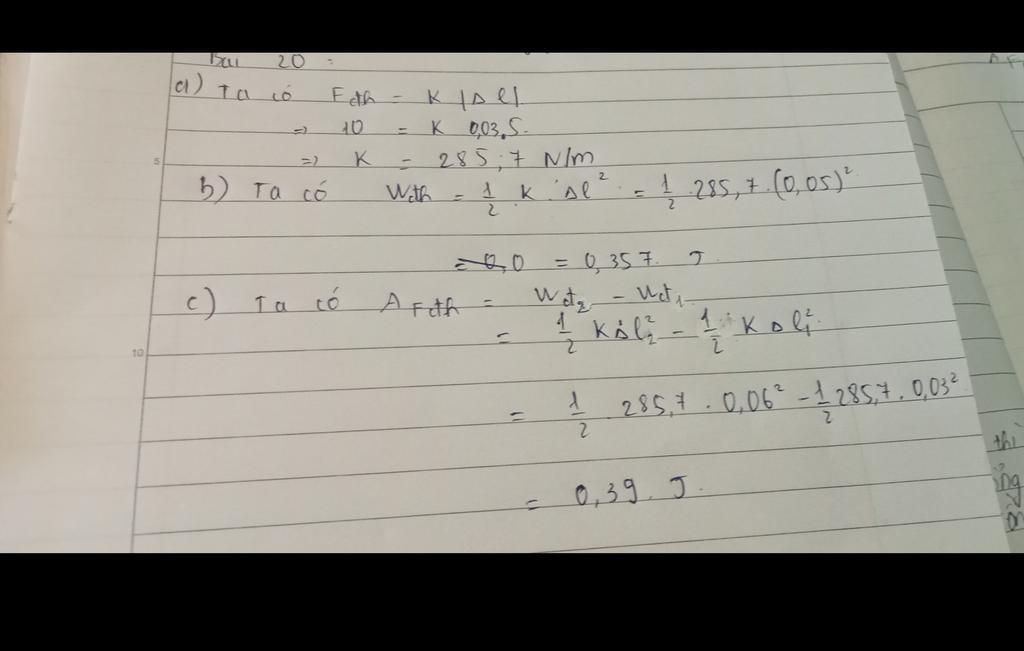 Bài 20 :
a) Ta có Fđh = K |Δl|
=> 10 = K 0,03.5.
=> K = 285,7 N/m
b) Ta có Wđh = 1/2 . K . Δl² = 1/2 . 285,7 . (0,05)²
= 0,0 = 0,357. J
c) Ta có A Fđh = Wđt₂ - Wđt₁
= 1/2 KΔl₂² - 1/2 K Δl₁²
= 1/2 285,7 . 0,06² - 1/2 285,7 . 0,03²
= 0,39. J.
5
10
A F
thì
ing